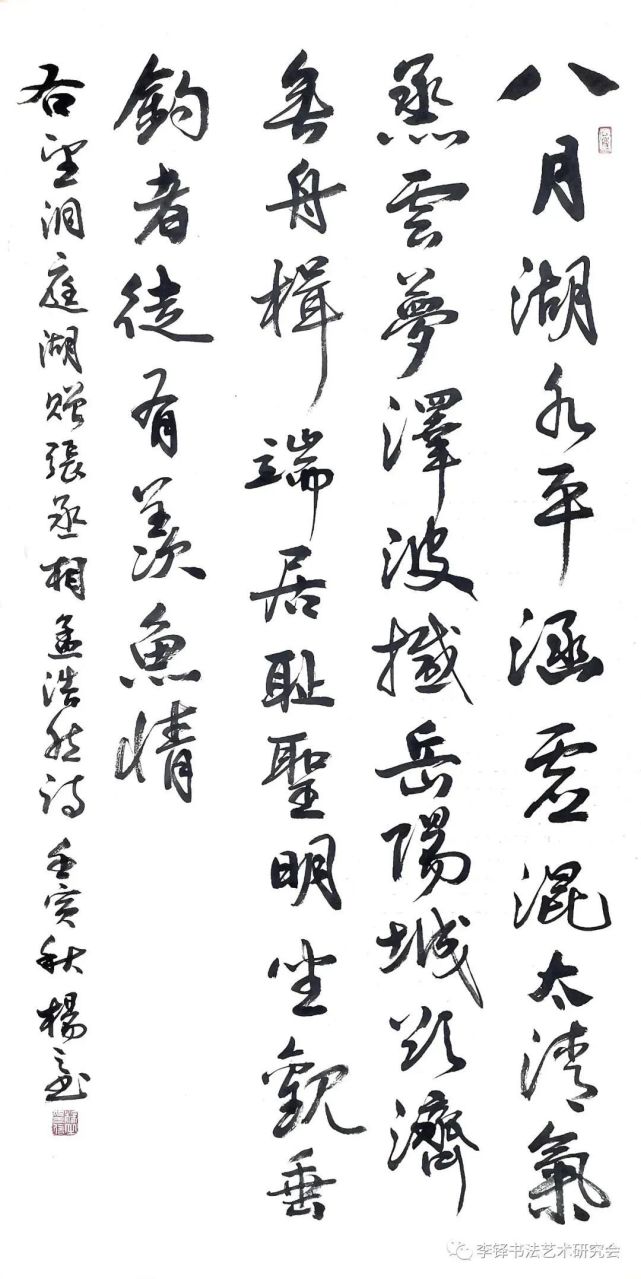 八月湖水平涵虚混太清氣
蒸雲夢澤波撼岳陽城欲濟
無舟楫端居耻聖明坐觀垂
釣者徒有羨魚情
右望洞庭湖贈張丞相孟浩然詩壬寅秋楊
李铎书法艺术研究会